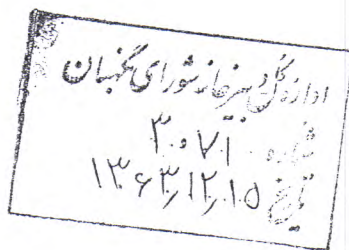 اداره کل دبیرخانه شورای نگهبان
شماره ۳۰۷۱
تاریخ ۱۳۶۳/۱۲/۱۵